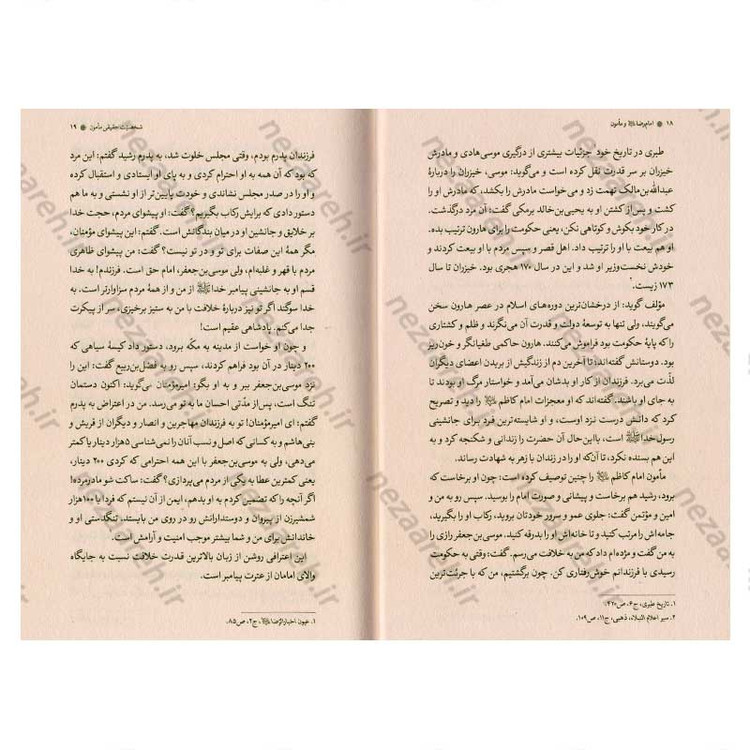 ۱۸ ● امام‌رضا ﷺ و مأمون
طبری در تاریخ خود جزئیات بیشتری از درگیری موسی‌هادی و مادرش
خیزران بر سر قدرت نقل کرده است و می‌گوید: موسی، خیزران را دربارهٔ
عبدالله‌بن‌مالک تهمت زد و می‌خواست مادرش را بکشد، که مادرش او را
کشت و پس از کشتن او به یحیی‌بن‌خالد برمکی گفت: آن مرد درگذشت.
در کار خود بکوش و کوتاهی نکن، یعنی حکومت را برای هارون ترتیب بده.
او هم بیعت با او را ترتیب داد. اهل قصر و سپس مردم با او بیعت کردند و
خودش نخست‌وزیر او شد و این در سال ۱۷۰ هجری بود. خیزران تا سال
۱۷۳ زیست.
مؤلف گوید: از درخشان‌ترین دوره‌های اسلام در عصر هارون سخن
می‌گویند، ولی تنها به توسعهٔ دولت و قدرت آن می‌نگرند و ظلم و کشتاری
را که پایهٔ حکومت بود فراموش می‌کنند. هارون حاکمی طغیانگر و خون‌ریز
بود. دوستانش گفته‌اند: تا آخرین دم از زندگیش از بریدن اعضای دیگران
لذّت می‌برد. فرزندان از کار او بدشان می‌آمد و خواستار مرگ او بودند تا
به جای او باشند. گفته‌اند که او معجزات امام کاظم ﷺ را دید و تصریح
کرد که دانش درست نزد اوست، و او شایسته‌ترین فرد برای جانشینی
رسول‌خدا ﷺ است، بااین‌حال آن حضرت را زندانی و شکنجه کرد و به
این هم بسنده نکرد، تا آن‌که او را در زندان با زهر به شهادت رساند.
مأمون امام کاظم ﷺ را چنین توصیف کرده است: چون او برخاست که
برود، رشید هم برخاست و پیشانی و صورت امام را بوسید. سپس رو به من و
امین و مؤتمن گفت: جلوی عمو و سرور خودتان بروید، رکاب او را بگیرید،
جامه‌اش را مرتب کنید و تا خانه‌اش او را بدرقه کنید. موسی‌بن‌جعفر رازی را
به من گفت و مژده‌ام داد که من به خلافت می‌رسم. گفت: وقتی به حکومت
رسیدی با فرزندانم خوش‌رفتاری کن. چون برگشتیم، من که با جرئت‌ترین
۱. تاریخ طبری، ج۶، ص۴۲۰.
۲. سیر اعلام النبلاء، ذهبی، ج۱۱، ص۱۰۹.
شخصیت حقیقی مأمون ● ۱۹
فرزندان پدرم بودم، وقتی مجلس خلوت شد، به پدرم رشید گفتم: این مرد
که بود که آن همه به او احترام کردی و به پای او ایستادی و استقبال کرده
و او را در صدر مجلس نشاندی و خودت پایین‌تر از او نشستی و به ما هم
دستور دادی که برایش رکاب بگیریم؟ گفت: او پیشوای مردم، حجت خدا
بر خلایق و جانشین او در میان بندگانش است. گفتم: ای امیرمؤمنان،
مگر همهٔ این صفات برای تو و در تو نیست؟ گفت: من پیشوای ظاهری
مردم با قهر و غلبه‌ام، ولی موسی‌بن‌جعفر، امام حق است. فرزندم! به خدا
قسم او به جانشینی پیامبر خدا ﷺ از من و از همهٔ مردم سزاوارتر است. به
خدا سوگند اگر تو نیز دربارهٔ خلافت با من به ستیز برخیزی، سر از پیکرت
جدا می‌کنم. پادشاهی عقیم است!
و چون او خواست از مدینه به مکّه برود، دستور داد کیسهٔ سیاهی که
۲۰۰ دینار در آن بود فراهم کردند، سپس رو به فضل‌بن‌ربیع گفت: این را
نزد موسی‌بن‌جعفر ببر و به او بگو: امیرمؤمنان می‌گوید: اکنون دستمان
تنگ است، پس‌از مدّتی احسان ما به تو می‌رسد. من در اعتراض به پدرم
گفتم: ای امیرمؤمنان! تو به فرزندان مهاجرین و انصار و دیگران از قریش و
بنی‌هاشم و به کسانی که اصل و نسب آنان را نمی‌شناسی ۵هزار دینار یا کمتر
می‌دهی، ولی به موسی‌بن‌جعفر با این همه احترامی که کردی ۲۰۰ دینار،
یعنی کمترین عطا به یکی از مردم می‌پردازی؟ گفت: ساکت شو مادرمرده!
اگر آنچه را که تضمین کردم به او بدهم، ایمن از آن نیستم که فردا با ۱۰۰هزار
شمشیرزن از پیروان و دوستدارانش رو در روی من بایستد. تنگدستی او و
خاندانش برای من و شما بیشتر موجب امنیت و آرامش است.
این اعترافی روشن از زبان بالاترین قدرت خلافت نسبت به جایگاه
والای امامان از عترت پیامبر است.
۱. عیون اخبارالرّضا ﷺ، ج۲، ص۸۵.
nezaareh.ir